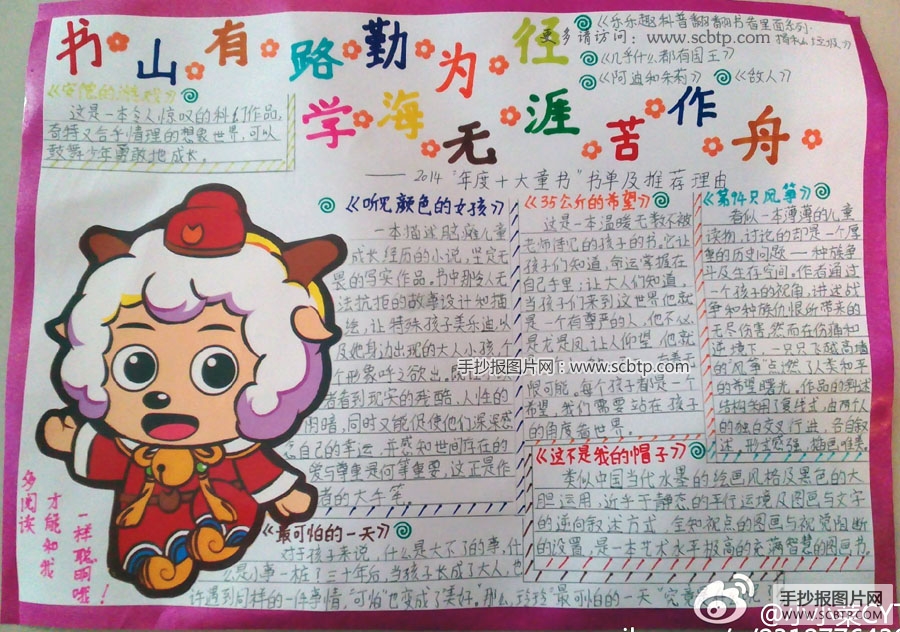 书山有路勤为径
学海无涯苦作舟
《乐乐趣科普翻翻书看里面系列》
更多请访问：www.scbtp.com
《几乎什么都有国王》
《阿迪和朱莉》
《敌人》
——2014“年度十大童书”书单及推荐理由
《安德的游戏》
这是一本令人惊叹的科幻作品,
奇特又合乎情理的想象世界,可以
鼓舞少年勇敢地成长。
《听见颜色的女孩》
一本描述脑瘫儿童
成长经历的小说,坚定无
畏的写实作品。书中那令人无
法抗拒的故事设计和描
绘,让特殊孩子美乐迪,以
及她身边出现的大人小孩,个
个形象呼之欲出。
者看到现实的残酷,人性的
阴暗,同时又能促使他们深深感
恩自己的幸运,并感知世间存在的
爱与尊重是何等重要,这正是作
者的大手笔。
《35公斤的希望》
这是一本温暖无数不被
老师待见的孩子的书,它让
孩子们知道,命运掌握在
自己手里;让大人们知道,
当孩子们来到这世界他就
是一个有尊严的人,他不必
是龙是凤让人仰望,他就
恨可能。每个孩子都是一个
希望,我们需要站在孩子
的角度看世界。
《第94只风筝》
看似一本薄薄的儿童
读物,讨论的却是一个厚
重的历史问题——种族争
斗及生存空间。作者通过
一个孩子的视角,讲述战
争和种族仇恨所带来的
无尽伤害,然而在伤痛和
逆境下,一只只飞越高墙
的“风筝”点燃了人类和平
的希望曙光。作品的叙述
结构采用了复线式,由两个人
的独白交叉行进,各自叙
述,形式感强,插画唯美
《这不是我的帽子》
类似中国当代水墨的绘画风格及黑色的大
胆运用,近乎于静态的平行运境及图画与文字
的逆向叙述方式,全知视点的图画与视觉阻断
的设置,是一本艺术水平极高的充满智慧的图画书。
《最可怕的一天》
对于孩子来说,什么是大不了的事,什
么是小事一桩?三十年后,当孩子长成了大人,也
许遇到同样的一件事情,“可怕”也变成了“美好”。那么,玲玲“最可怕的一天”究竟
多阅读
才能和我
一样聪明哦！
手抄报图片网：www.scbtp.com
手抄报图片网
WWW.SCBTP.COM